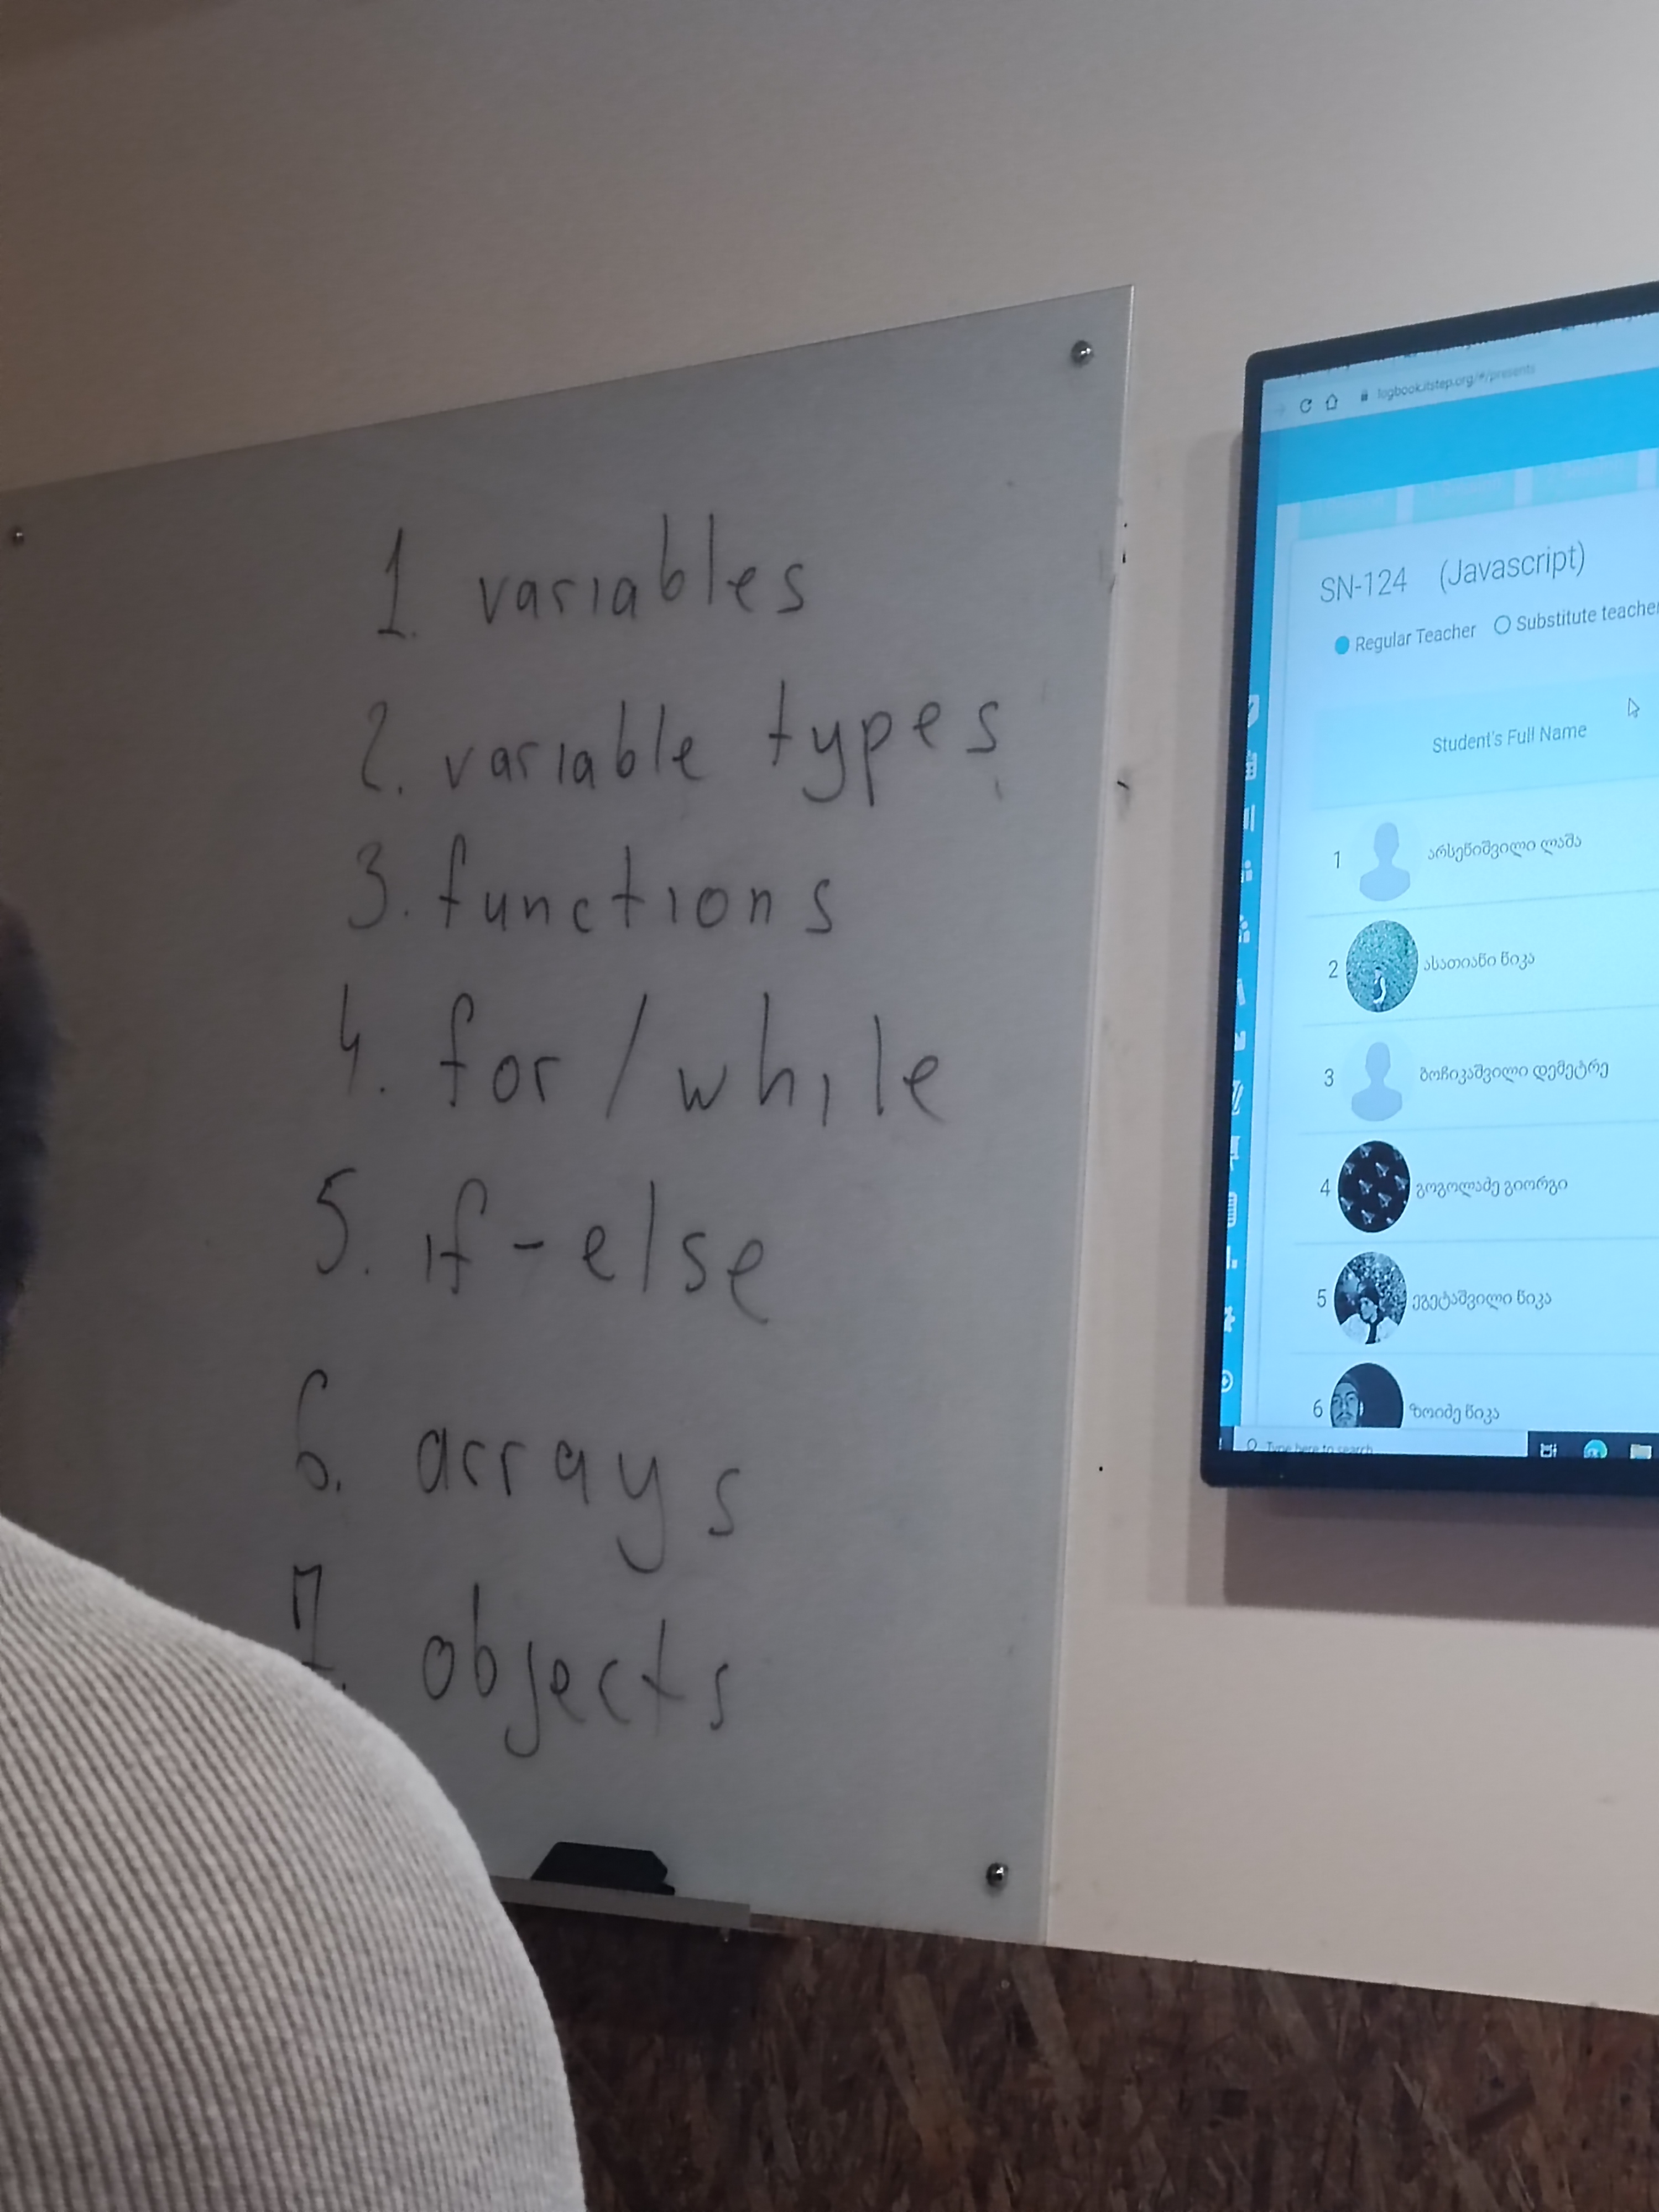 1. variables
2. variable types
3. functions
4. for / while
5. if - else
6. arrays
7. objects
logbook.itstep.org/#/presents
SN-124 (Javascript)
Regular Teacher Substitute teacher
Student's Full Name
1 არსენიშვილი ლაშა
2 ასათიანი ნიკა
3 ბოჩიკაშვილი დემეტრე
4 გოგოლაძე გიორგი
5 ეგეტაშვილი ნიკა
6 ზოიძე ნიკა
Type here to search